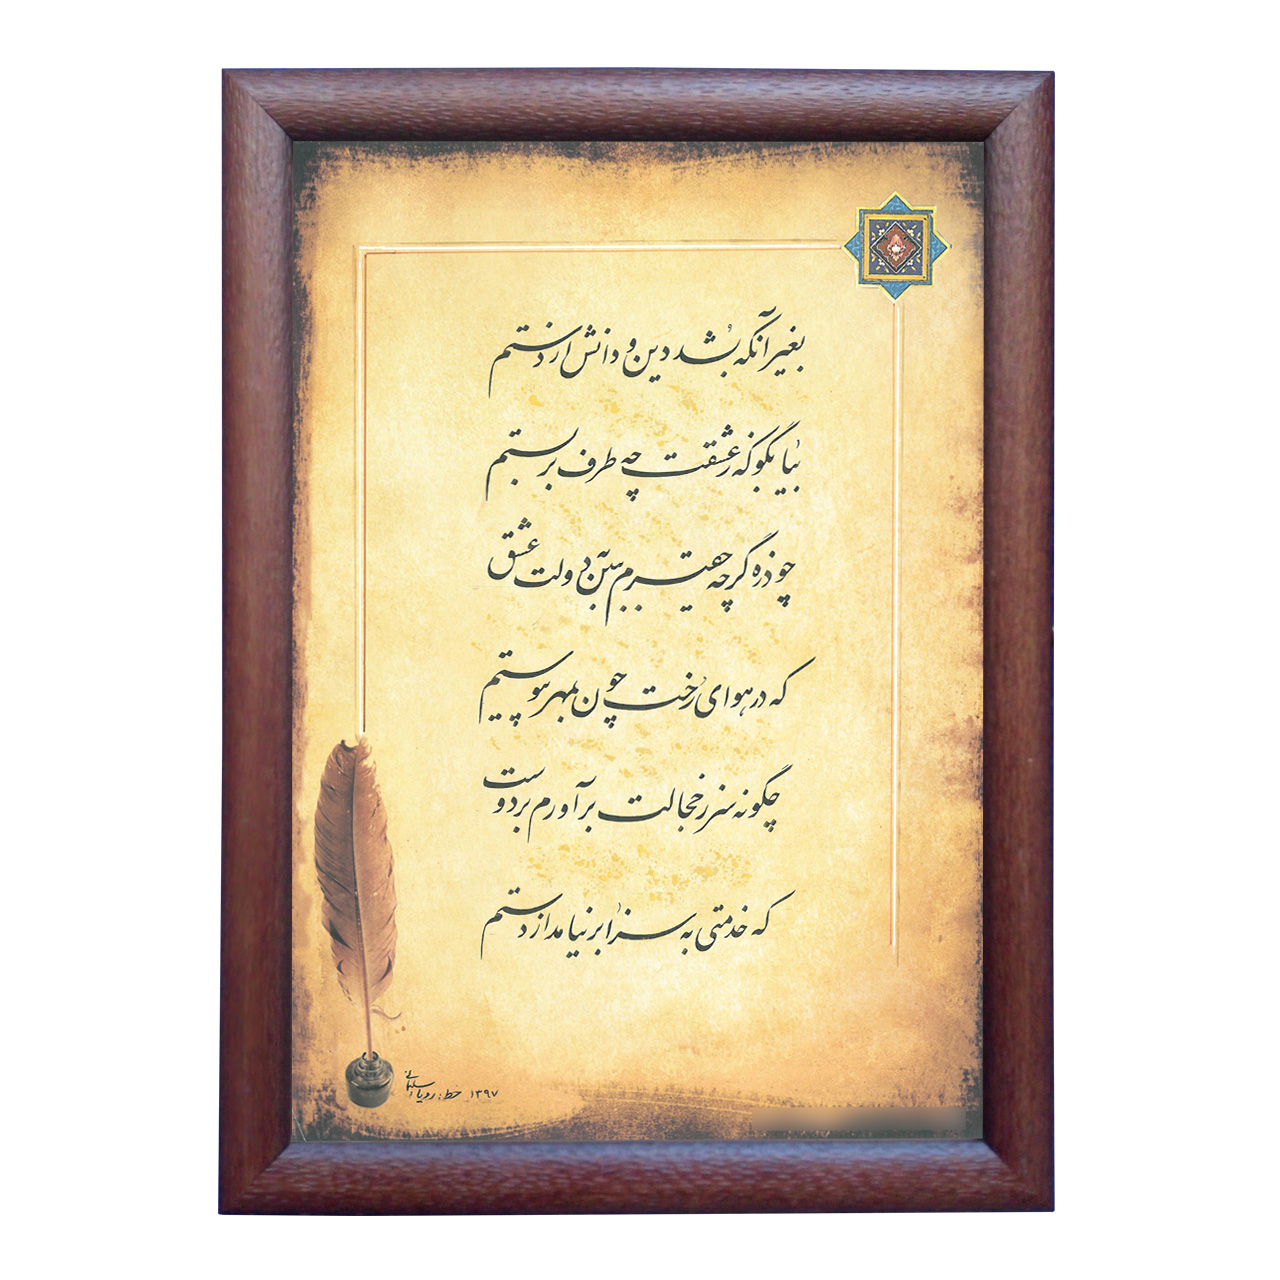 بغیر آنکه بُشد دین و دانش از دستم
بیا بگو که ز عشقت چه طرف بربستم
چو ذره گرچه حقیرم ببین به دولت عشق
که در هوای رُخت چون بمهر پیوستم
چگونه سر ز خجالت برآورم بر دوست
که خدمتی به سزا برنیامد از دستم
خط: رویا سلیمانی ۱۳۹۷